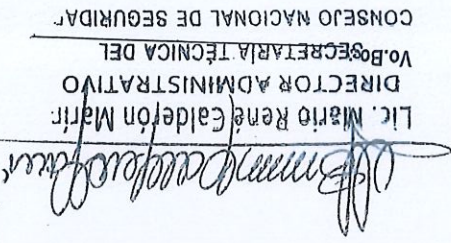 Lic. Mario René Calderón Marín
DIRECTOR ADMINISTRATIVO
Vo.Bo. SECRETARÍA TÉCNICA DEL
CONSEJO NACIONAL DE SEGURIDAD